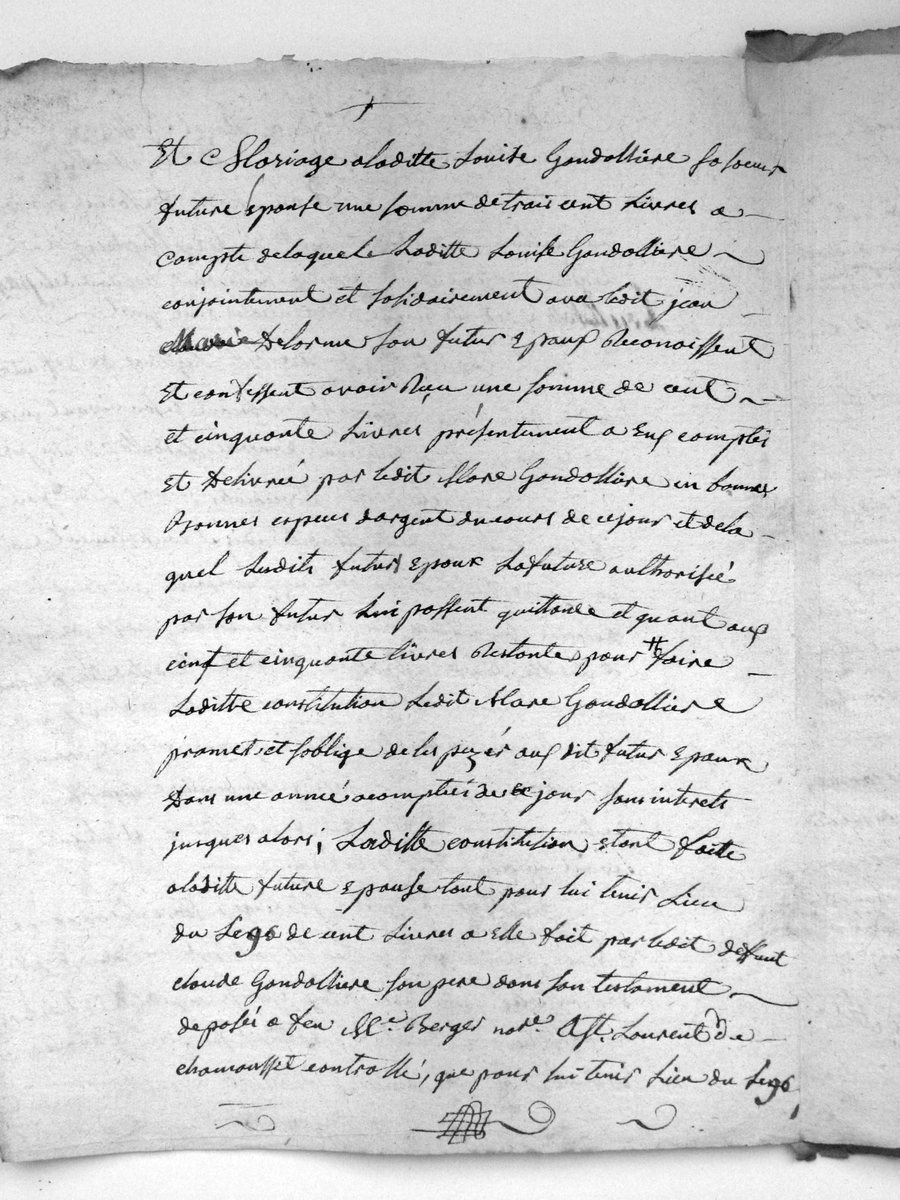 Et Mariage aladitte Louise Gondolliere Sa soeur
future Epouse une somme de trois cent Livres a
Compte delaquele Laditte Louise Gondolliere
conjointement et solidairement avec ledit jean
Marie Delorme son futur Epoux Reconoissent
Et confessent avoir Reçu une somme de cent
et cinquante Livres présentement a Eux comptés
Et Delivrée par ledit Marc Gondolliere en bonnes
Bonnes especes dargent du cours de cejour et dela
quel Lesdits futurs Epoux Lafuture authorisée
par son futur Lui passent quittance et quant aux
cent et cinquante livres Restante pour faire
Laditte constitution Ledit Marc Gondolliere
promet et soblige de les payér aux dit futur Epoux
Dans une année acomptér de ce jour sans interets
jusques alors; Laditte constitution etant faitte
aladitte future Epouse tant pour lui tenir Lieu
du Legs de cent Livres a elle fait par ledit deffunt
claude Gondolliere son pere dans son testament
deposés a feu Me. Berger nore. A St. Laurent De
chamousset controllé, que pour lui tenir Lieu du Legs